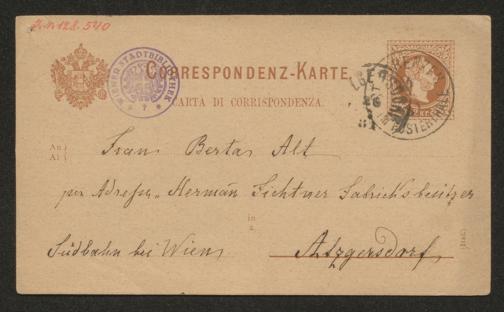 J.N. 128.540
WIENER STADTBIBLIOTHEK
CORRESPONDENZ-KARTE.
CARTA DI CORRISPONDENZA.
An
A
Frau Berta Alt
per Adresse Herman Fichtner Fabriksbesitzer
in
a
Südbahn bei Wien, Atzgersdorf,